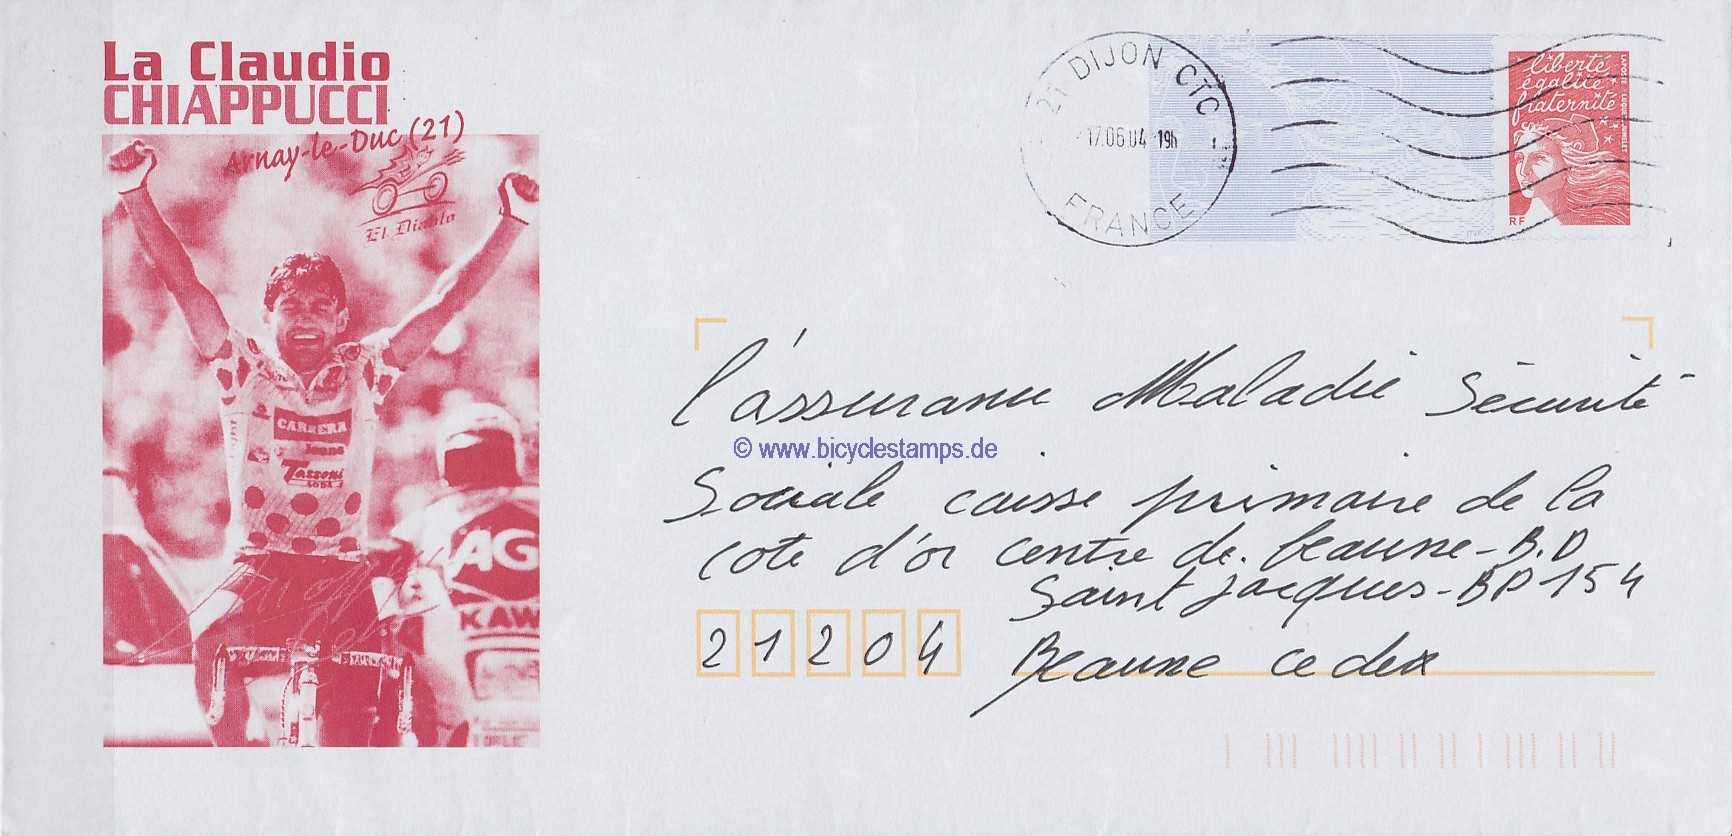 La Claudio
CHIAPPUCCI
Arnay-le-Duc (21)
El Diablo
CARRERA
Jeans
Tassoni
SODA
AG
KAW
21 DIJON CTC
17.06.04 19h
FRANCE
liberté
égalité
fraternité
LA POSTE LUQUET
RF
l'assurance Maladie Sécurité
© www.bicyclestamps.de
Sociale caisse primaire de la
cote d'or centre de. beaune-B.D
Saint Jacques-BP154
21204 Beaune cedex